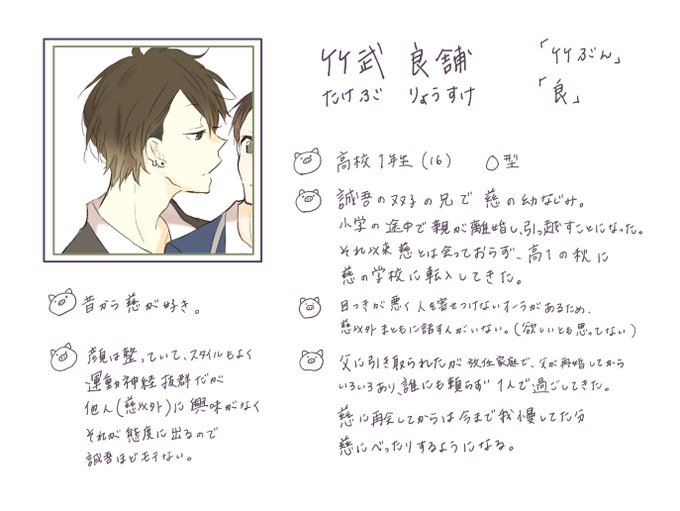 竹武 良舗
たけぶ りょうすけ
「竹ぶん」
「良」
高校1年生(16) O型
誠吾の双子の兄で 慈の幼なじみ。
小学の途中で親が離婚し、引っ越すことになった。
それ以来 慈とは会っておらず、高1の秋に
慈の学校に転入してきた。
目つきが悪く人を寄せつけないオーラがあるため、
慈以外まともに話す人がいない。(欲しいとも思ってない)
父に引き取られたが放任家庭で、父が再婚してから
いろいろあり、誰にも頼らず1人で過ごしてきた。
慈に再会してからは今まで我慢してた分
慈にべったりするようになる。
昔から慈が好き。
顔は整っていて、スタイルもよく
運動神経抜群だが
他人(慈以外)に興味がなく
それが態度に出るので
誠吾ほどモテない。